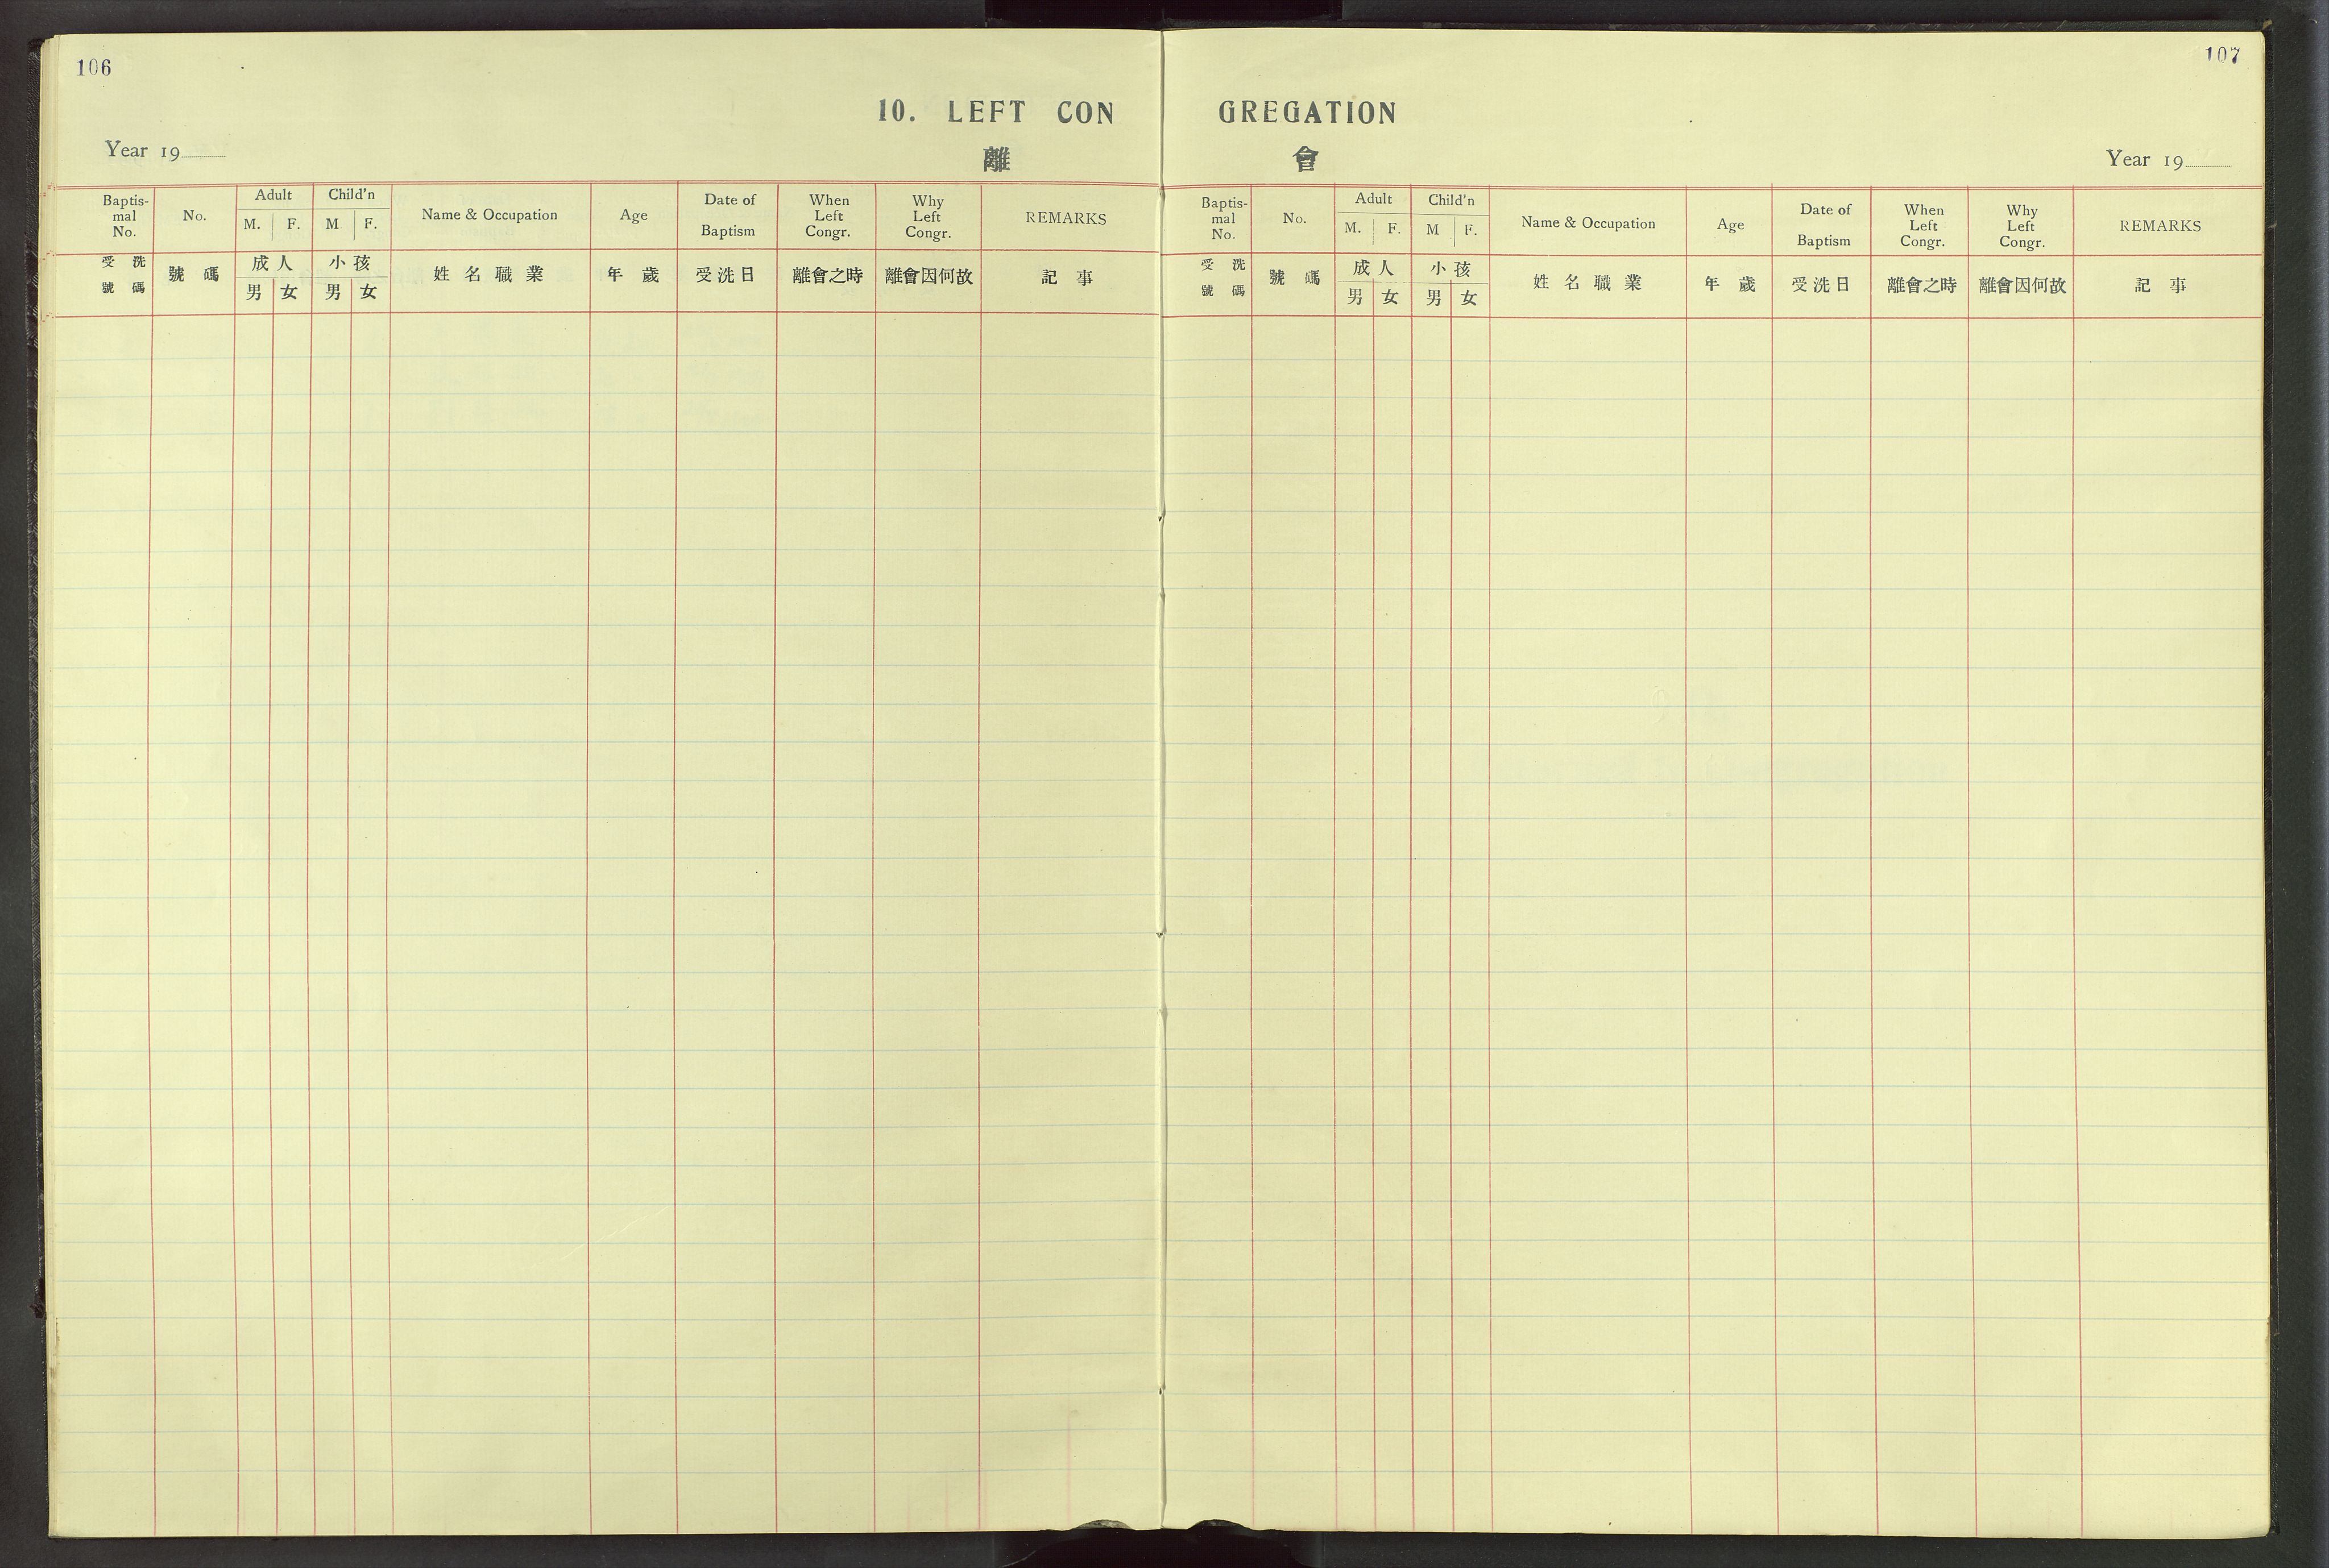 106
107
10. LEFT CON GREGATION
離 會
Year 19
Year 19
Baptis-
mal
No.
No.
Adult
M. F.
Child'n
M F.
Name & Occupation
Age
Date of
Baptism
When
Left
Congr.
Why
Left
Congr.
REMARKS
受 洗
號 碼
號 碼
成 人
男 女
小 孩
男 女
姓 名 職 業
年 歲
受 洗 日
離會之時
離會因何故
記 事
Baptis-
mal
No.
No.
Adult
M. F.
Child'n
M F.
Name & Occupation
Age
Date of
Baptism
When
Left
Congr.
Why
Left
Congr.
REMARKS
受 洗
號 碼
號 碼
成 人
男 女
小 孩
男 女
姓 名 職 業
年 歲
受 洗 日
離會之時
離會因何故
記 事